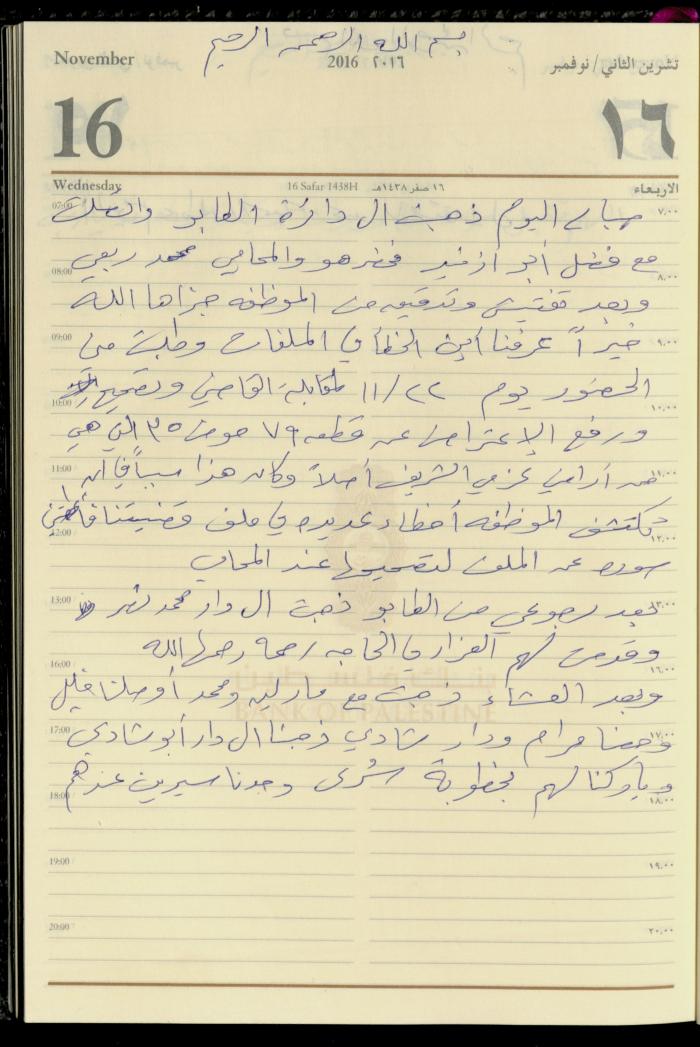 بسم الله الرحمن الرحيم
November 2016 ٢٠١٦ تشرين الثاني / نوفمبر
16 ١٦
Wednesday 16 Safar 1438H ١٦ صفر ١٤٣٨هـ الاربعاء
07:00 صباح اليوم ذهبت ال دائرة الطابو واتصلت ٧،٠٠
مع فضل أبو ازنيد فحضر هو والمحامي محمد ربعي
08:00 ٨،٠٠
وبعد تفتيش وتدقيق من الموظفه جزاها الله
09:00 خيراً عرفنا أين الخطأ في الملفات وطلبت مني ٩،٠٠
الحضور يوم ٢٢/١١ لمقابلة القاضي وتصحيح
10:00 ١٠،٠٠
ورفع الإعتراض عن قطعه ٧٩ حوض ٣٥ التي هي
11:00 من أراضي عزمي الشريف أصلاً وكان هذا سبباً في أن ١١،٠٠
تكتشف الموظفه أخطاء عديده في ملف قضيتنا
12:00 ١٢،٠٠
صوره عن الملف لتصحيحها عند المحامي
13:00 بعد رجوعي من الطابو ذهبت ال دار محمد ١٣،٠٠
وقدمت لهم العزاء بالحاجه رحمها الله
16:00 ١٦،٠٠
وبعد العشاء ذهبت مع ومحمد أوصلنا خليل
بنك فلسطين
BANK OF PALESTINE
17:00 مرام ودار شادي ذهبنا ال دار أبو شادي ١٧،٠٠
وباركنا لهم بخطوبة بشرى وجدنا سيرين عندهم
18:00 ١٨،٠٠
19:00 ١٩،٠٠
20:00 ٢٠،٠٠